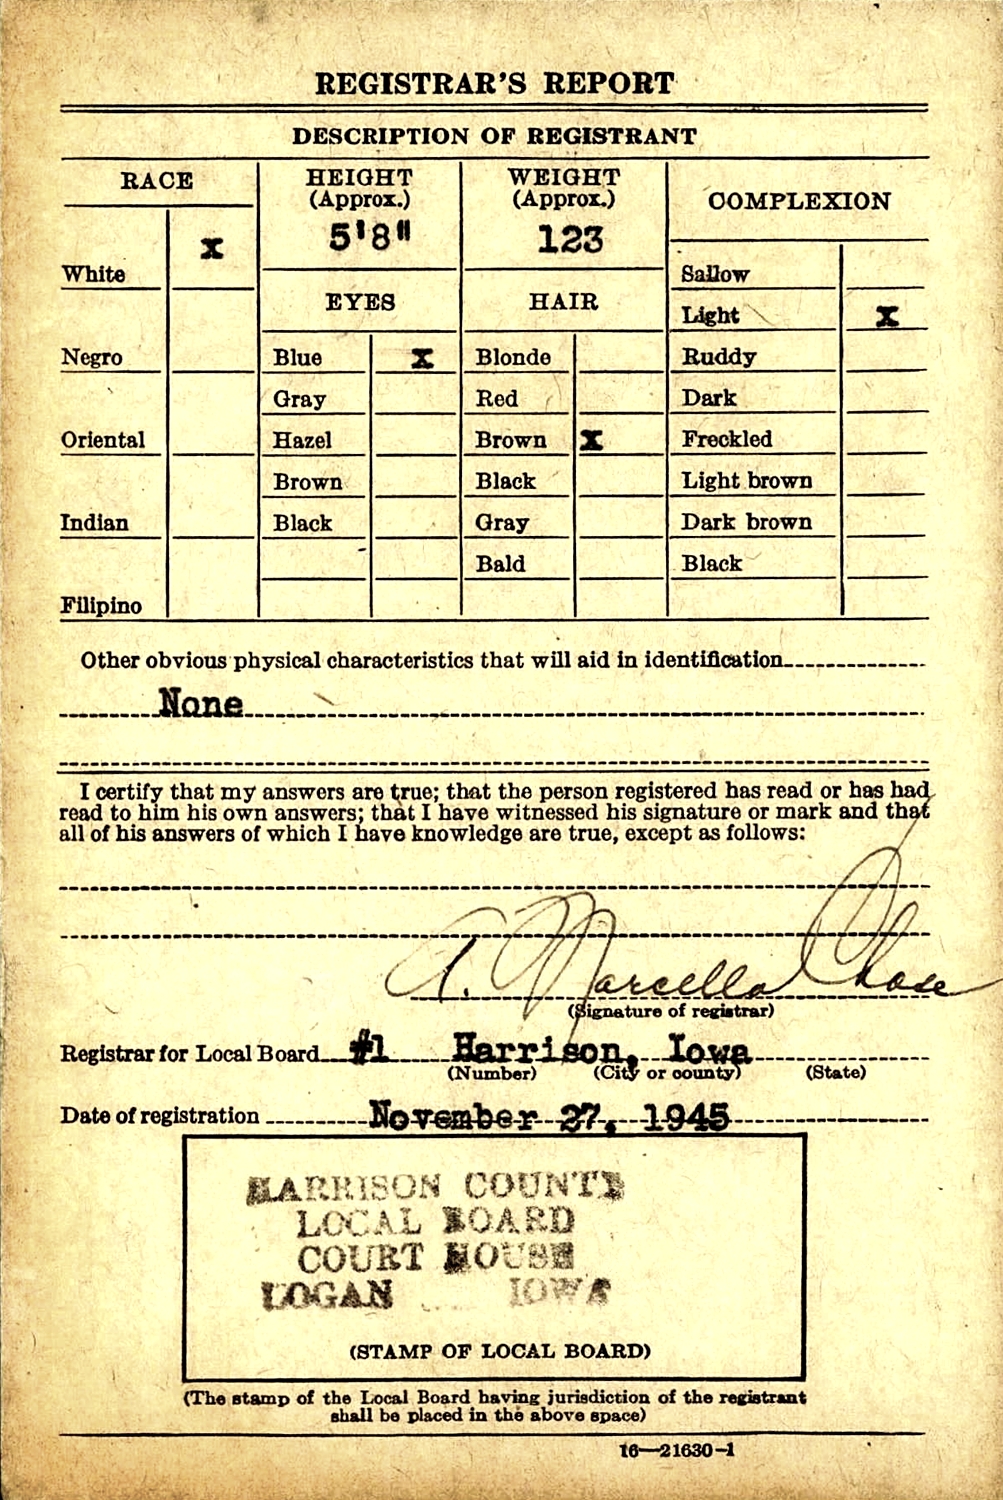 REGISTRAR'S REPORT
DESCRIPTION OF REGISTRANT
RACE
HEIGHT
(Approx.)
5'8"
WEIGHT
(Approx.)
123
COMPLEXION
White X
Negro
Oriental
Indian
Filipino
EYES
Blue X
Gray
Hazel
Brown
Black
HAIR
Blonde
Red
Brown X
Black
Gray
Bald
Sallow
Light X
Ruddy
Dark
Freckled
Light brown
Dark brown
Black
Other obvious physical characteristics that will aid in identification
None
I certify that my answers are true; that the person registered has read or has had
read to him his own answers; that I have witnessed his signature or mark and that
all of his answers of which I have knowledge are true, except as follows:
A. Marcella Chase
(Signature of registrar)
Registrar for Local Board #1 Harrison, Iowa
(Number) (City or county) (State)
Date of registration November 27, 1945
HARRISON COUNTY
LOCAL BOARD
COURT HOUSE
LOGAN IOWA
(STAMP OF LOCAL BOARD)
(The stamp of the Local Board having jurisdiction of the registrant
shall be placed in the above space)
16—21630-1